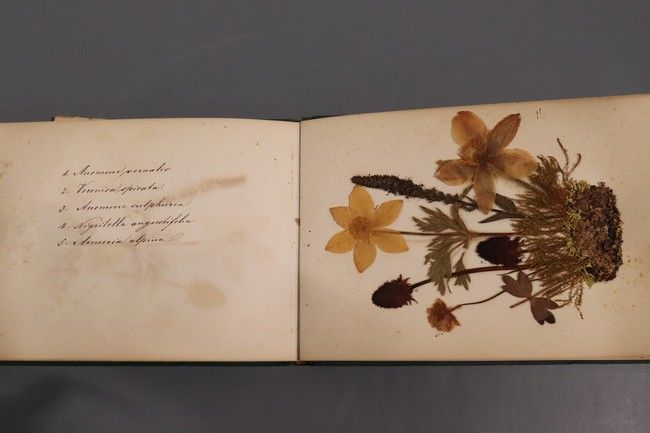 1. Anemone vernalis
2. Veronica spicata.
3. Anemone sulphurea
4. Nigritella angustifolia
5. Armeria alpina